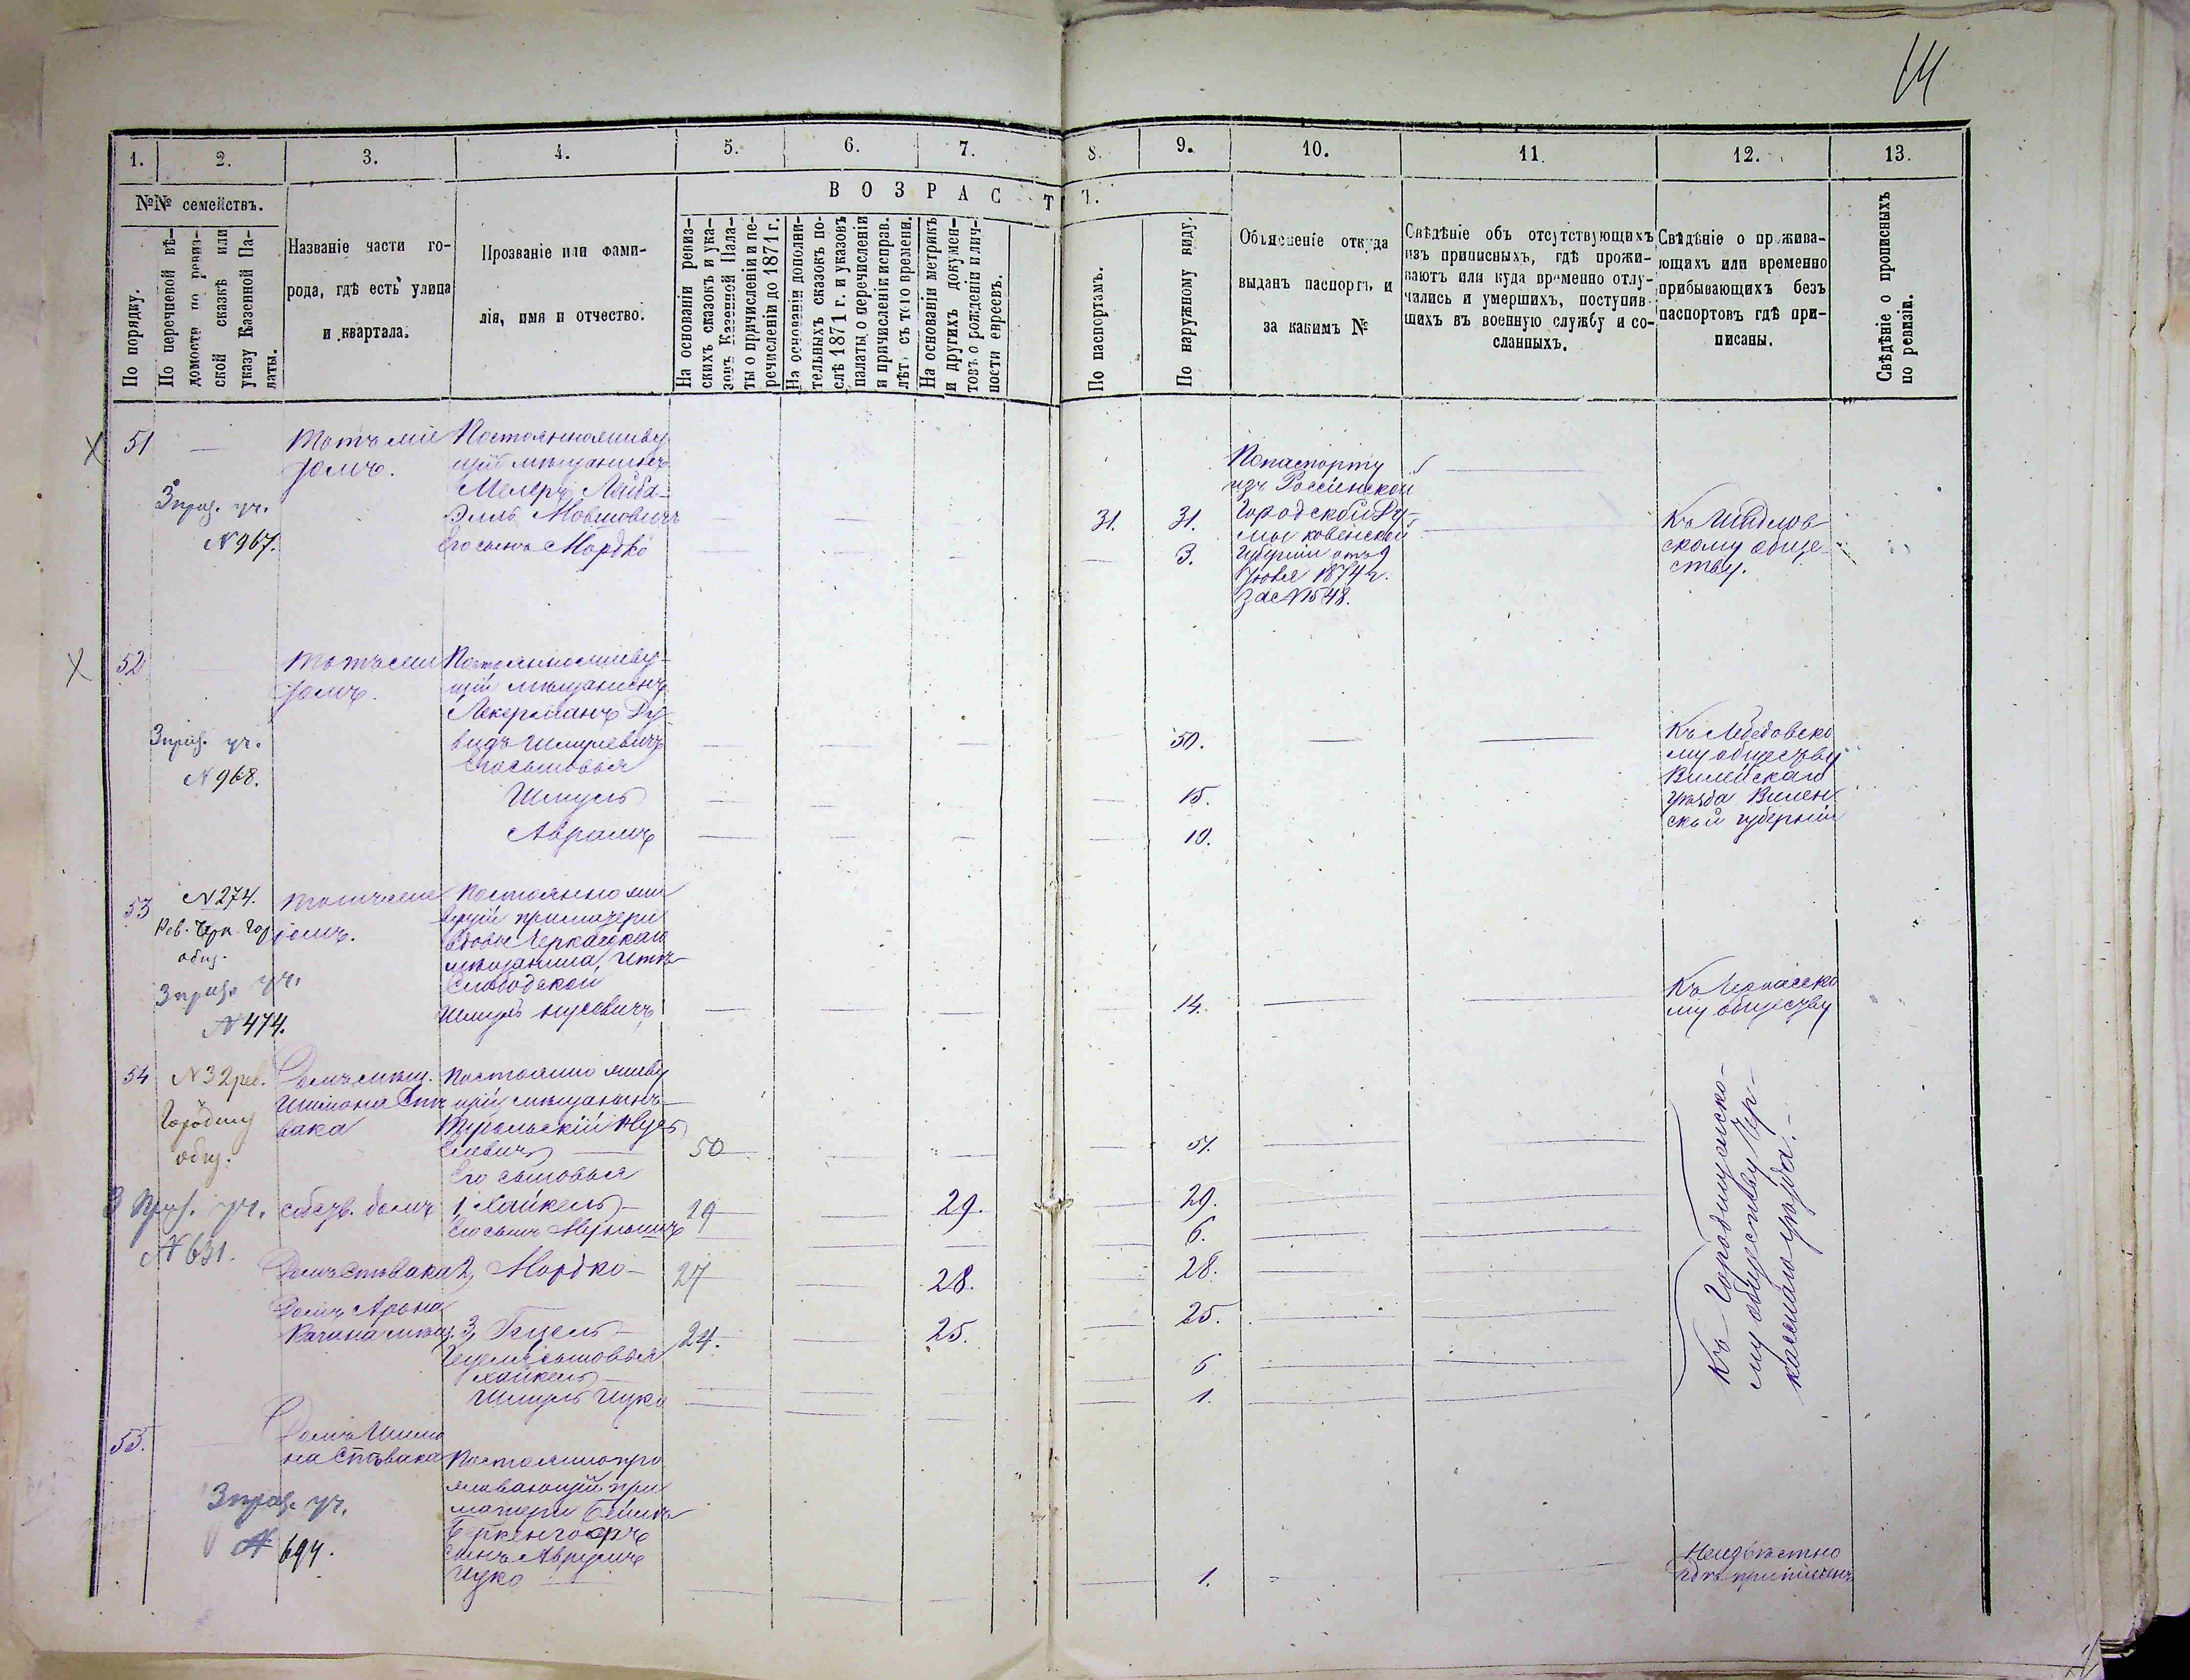 14
1.
2.
3.
4.
5.
6.
7.
8.
9.
10.
11.
12.
13.
№№ семействъ.
ВОЗРАСТЪ.
По порядку.
По перечневой вѣ-
домости по ревиз-
ской сказкѣ или
указу Казенной Па-
латы.
Названіе части го-
рода, гдѣ есть улица
и квартала.
Прозваніе или фами-
лія, имя и отчество.
На основаніи ревиз-
скихъ сказокъ и ука-
зовъ Казенной Пала-
ты о причисленіи и пе-
речисленіи до 1871 г.
На основаніи дополни-
тельныхъ сказокъ по-
слѣ 1871 г. и указовъ
палаты, о перечисленіи
и причисленіи исправ.
лѣтъ съ того времени.
На основаніи метрикъ
и другихъ докумен-
товъ о рожденіи и лич-
ности евреевъ.
По паспортамъ.
По наружному виду.
Объясненіе откуда
выданъ паспортъ и
за какимъ №
Свѣдѣніе объ отсутствующихъ
изъ приписныхъ, гдѣ прожи-
ваютъ или куда временно отлу-
чились и умершихъ, поступив-
шихъ въ военную службу и со-
сланныхъ.
Свѣдѣніе о прожива-
ющихъ или временно
прибывающихъ безъ
паспортовъ гдѣ при-
писаны.
Свѣдѣніе о прописныхъ
по ревизіи.
51
3 приз. уч.
N 967.
домъ.
Постоянноживу
щій мѣщанинъ
Меперъ Лейба-
Элль Мовшовичъ
Его сынъ Мордко
31.
31.
3.
По паспорту
изъ Россіенской
Городской Ду-
мы Ковенской
Губерніи отъ 9
Іюня 1874 г.
за N 1548.
скому обще-
ству.
52
3 приз. уч.
N 968.
домъ.
Постоянноживу-
щій мѣщанинъ
Лекерманъ Ду-
видъ Шмулевичъ
Его сыновья
Шмуль
Аврамъ
50.
15.
10.
Къ Лебедовско
му обществу
Вилейскаго
уѣзда Вилен
ской губерніи
53
N 274.
Рев. Черк. Гор.
общ.
3 приз. уч.
N 474.
домъ.
Постоянно жи
вущій при матери
вдовы Черкаскаго
мѣщанина, Итъ-
Слободской
Шмуль Нусевичъ
14.
Къ Черкасско
му обществу
54
N 32 рев.
Городищ
общ.
3 приз. уч.
N 631.
Домъ мѣщ.
Шимона Спи
вака
Постоянно живу
щій мѣщанинъ
Нусъ
Его сыновья
50
51.
собств. домъ
1, Хайкель
29
29.
29.
Его сынъ
6.
Домъ Спивака
2, Мордко
27
28.
28.
Домъ Арона
Кагана мѣщ.
3, Гецель
24.
25.
25.
Гецеля сыновья
Хайкель
5
Шмуль Ицко
1.
Къ Городищенско-
му обществу Чер-
касскаго уѣзда.
55.
3 приз. уч.
N 694.
Домъ Шимо
на Спивака
Постоянно про
живающій при
матери Бейли
Беркенгофъ
сынъ Аврумъ
Ицко
1.
Неизвѣстно
гдѣ приписанъ